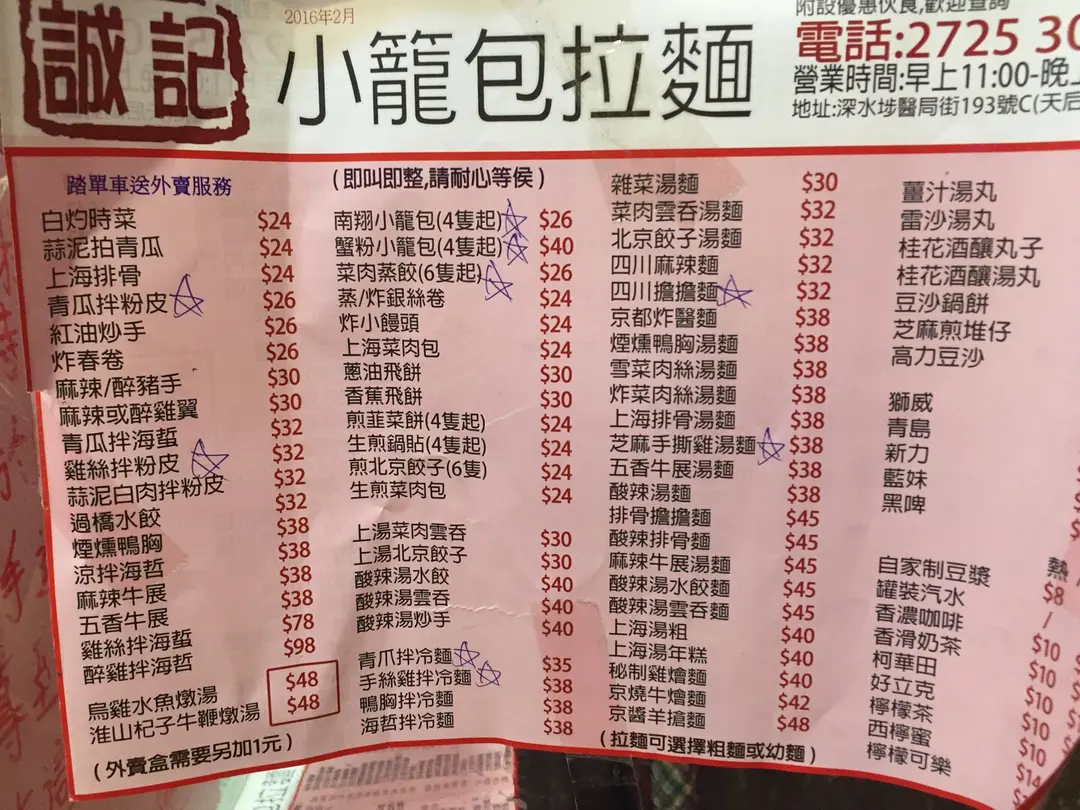 誠記
2016年2月
小籠包拉麵
附設優惠伙食,歡迎查詢
電話:2725 30
營業時間:早上11:00-晚上
地址:深水埗醫局街193號C(天后
踏單車送外賣服務
白灼時菜 $24
蒜泥拍青瓜 $24
上海排骨 $24
青瓜拌粉皮 $26
紅油炒手 $26
炸春卷 $26
麻辣/醉豬手 $30
麻辣或醉雞翼 $30
青瓜拌海蜇 $32
雞絲拌粉皮 $32
蒜泥白肉拌粉皮 $32
過橋水餃 $32
煙燻鴨胸 $38
涼拌海哲 $38
麻辣牛展 $38
五香牛展 $38
雞絲拌海蜇 $78
醉雞拌海哲 $98
烏雞水魚燉湯 $48
淮山杞子牛鞭燉湯 $48
(外賣盒需要另加1元)
(即叫即整,請耐心等侯)
南翔小籠包(4隻起) $26
蟹粉小籠包(4隻起) $40
菜肉蒸餃(6隻起) $26
蒸/炸銀絲卷 $24
炸小饅頭 $24
上海菜肉包 $24
蔥油飛餅 $30
香蕉飛餅 $30
煎韮菜餅(4隻起) $24
生煎鍋貼(4隻起) $24
煎北京餃子(6隻) $24
生煎菜肉包 $24
上湯菜肉雲吞 $30
上湯北京餃子 $30
酸辣湯水餃 $40
酸辣湯雲吞 $40
酸辣湯炒手 $40
青爪拌冷麵 $35
手絲雞拌冷麵 $38
鴨胸拌冷麵 $38
海哲拌冷麵 $38
雜菜湯麵 $30
菜肉雲吞湯麵 $32
北京餃子湯麵 $32
四川麻辣麵 $32
四川擔擔麵 $32
京都炸醫麵 $38
煙燻鴨胸湯麵 $38
雪菜肉絲湯麵 $38
炸菜肉絲湯麵 $38
上海排骨湯麵 $38
芝麻手撕雞湯麵 $38
五香牛展湯麵 $38
酸辣湯麵 $38
排骨擔擔麵 $45
酸辣排骨麵 $45
麻辣牛展湯麵 $45
酸辣湯水餃麵 $45
酸辣湯雲吞麵 $45
上海湯粗 $40
上海湯年糕 $40
秘制雞燴麵 $40
京燒牛燴麵 $42
京醬羊搶麵 $48
(拉麵可選擇粗麵或幼麵)
薑汁湯丸
雷沙湯丸
桂花酒釀丸子
桂花酒釀湯丸
豆沙鍋餅
芝麻煎堆仔
高力豆沙
獅威
青島
新力
藍妹
黑啤
熱
自家制豆漿 $8
罐裝汽水 /
香濃咖啡 $10
香滑奶茶 $10
柯華田 $10
好立克 $10
檸檬茶 $10
西檸蜜 $14
檸檬可樂